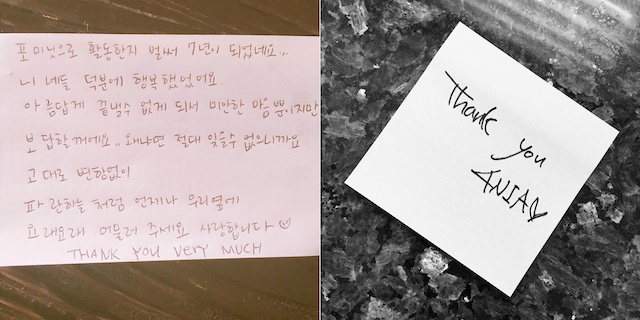 포 미닛으로 활동한지 벌써 7년이 되었네요...
니 네들 덕분에 행복했었어요
아 름답게 끝낼수 없게 되서 미안한 마음뿐이지만
보 답할꺼에요.. 왜냐면 절대 잊을수 없으니까요
고 대로 변함없이
파 란하늘 처럼 언제나 우리옆에
요 래요래 머물러 주세요 사랑합니다 ♡
THANK YOU VERY MUCH
Thank you
4NIA♡